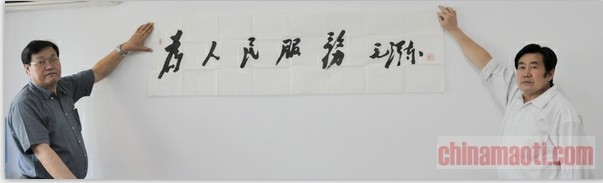 為人民服務 毛澤东
chinamaoti.com